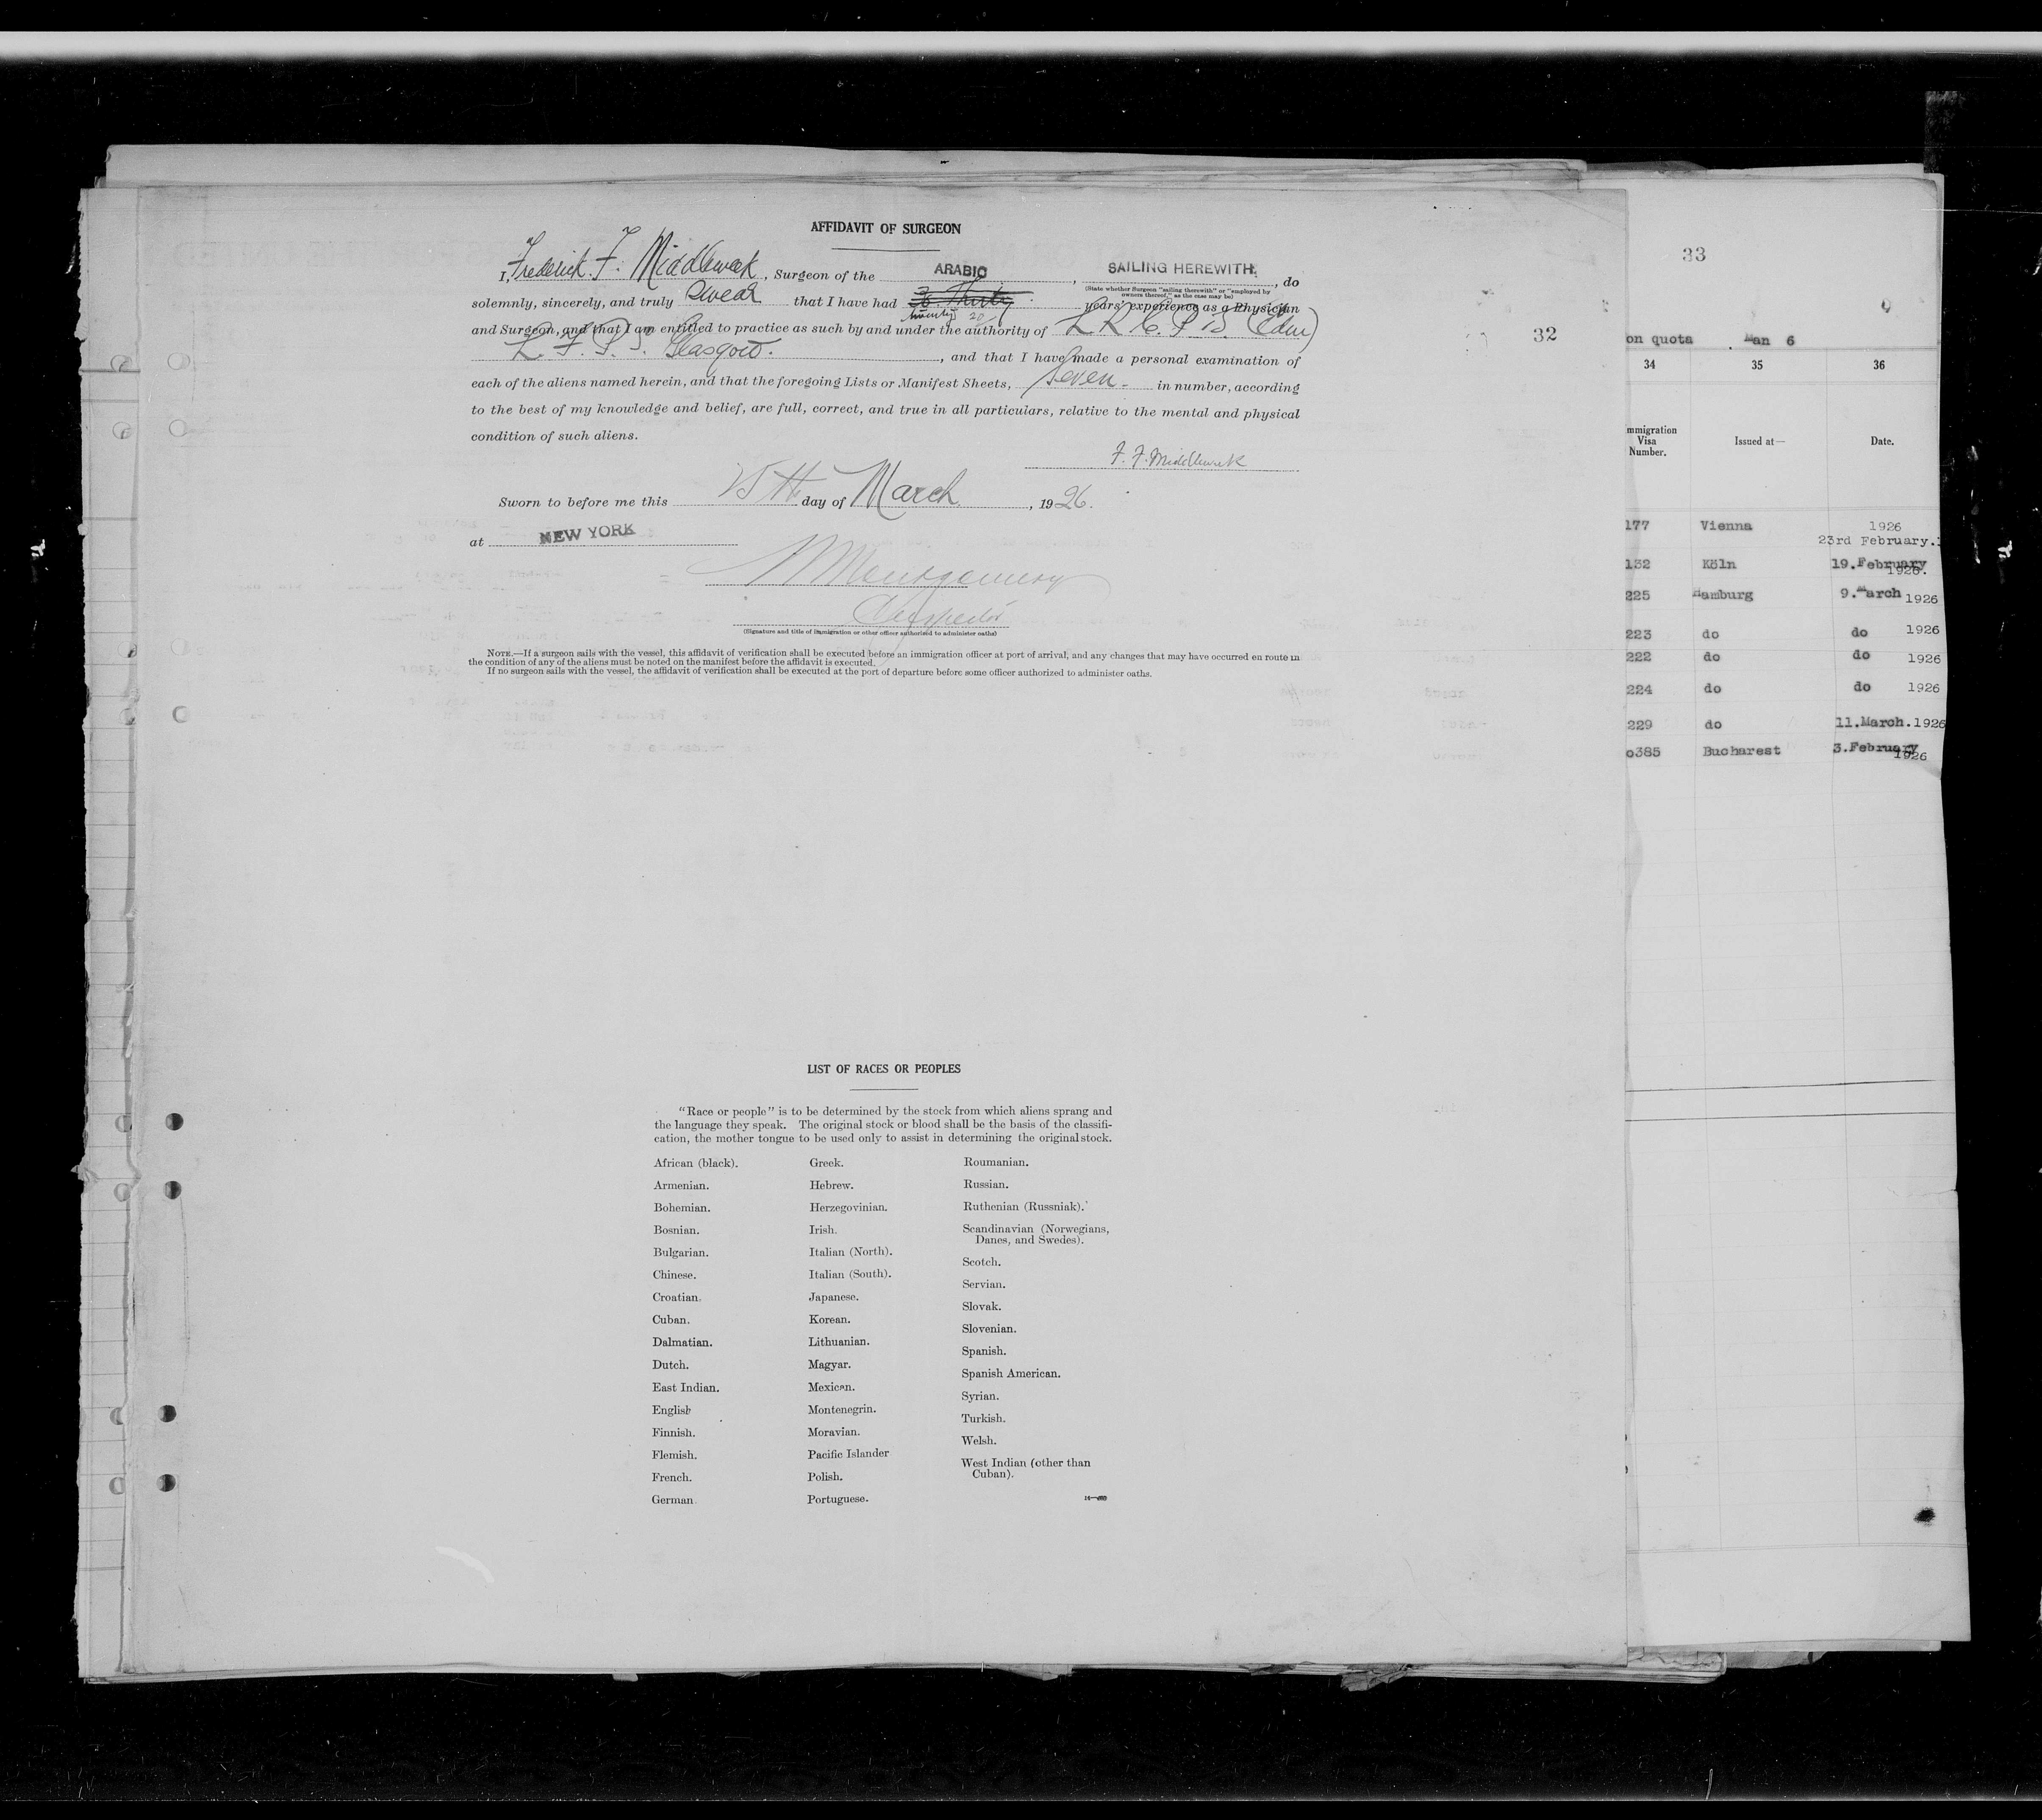 AFFIDAVIT OF SURGEON
I, Frederick. F. Middleweek, Surgeon of the ARABIC, SAILING HEREWITH, do
(State whether Surgeon "sailing therewith" or "employed by
owners thereof," as the case may be)
solemnly, sincerely, and truly Swear that I have had 30 Thirty years' experience as a Physician
twenty 20
and Surgeon, and that I am entitled to practice as such by and under the authority of L R C. P. S. (Edin)
L. F. P. S. Glasgow. , and that I have made a personal examination of
each of the aliens named herein, and that the foregoing Lists or Manifest Sheets, Seven - in number, according
to the best of my knowledge and belief, are full, correct, and true in all particulars, relative to the mental and physical
condition of such aliens.
F. F. Middleweek
Sworn to before me this day of March, 1926.
at NEW YORK
Montgomery
Inspector
(Signature and title of immigration or other officer authorized to administer oaths)
NOTE.—If a surgeon sails with the vessel, this affidavit of verification shall be executed before an immigration officer at port of arrival, and any changes that may have occurred en route in
the condition of any of the aliens must be noted on the manifest before the affidavit is executed.
If no surgeon sails with the vessel, the affidavit of verification shall be executed at the port of departure before some officer authorized to administer oaths.
32
LIST OF RACES OR PEOPLES
"Race or people" is to be determined by the stock from which aliens sprang and
the language they speak. The original stock or blood shall be the basis of the classifi-
cation, the mother tongue to be used only to assist in determining the original stock.
African (black).
Armenian.
Bohemian.
Bosnian.
Bulgarian.
Chinese.
Croatian.
Cuban.
Dalmatian.
Dutch.
East Indian.
English
Finnish.
Flemish.
French.
German.
Greek.
Hebrew.
Herzegovinian.
Irish.
Italian (North).
Italian (South).
Japanese.
Korean.
Lithuanian.
Magyar.
Mexican.
Montenegrin.
Moravian.
Pacific Islander
Polish.
Portuguese.
Roumanian.
Russian.
Ruthenian (Russniak).
Scandinavian (Norwegians,
Danes, and Swedes).
Scotch.
Servian.
Slovak.
Slovenian.
Spanish.
Spanish American.
Syrian.
Turkish.
Welsh.
West Indian (other than
Cuban).
33
on quota Man 6
34 35 36
mmigration
Visa
Number.
Issued at—
Date.
177 Vienna 1926
23rd February.
132 Köln 19.February
1926.
225 Hamburg 9.March 1926
223 do do 1926
222 do do 1926
224 do do 1926
229 do 11.March.1926
o385 Bucharest 3.February
1926